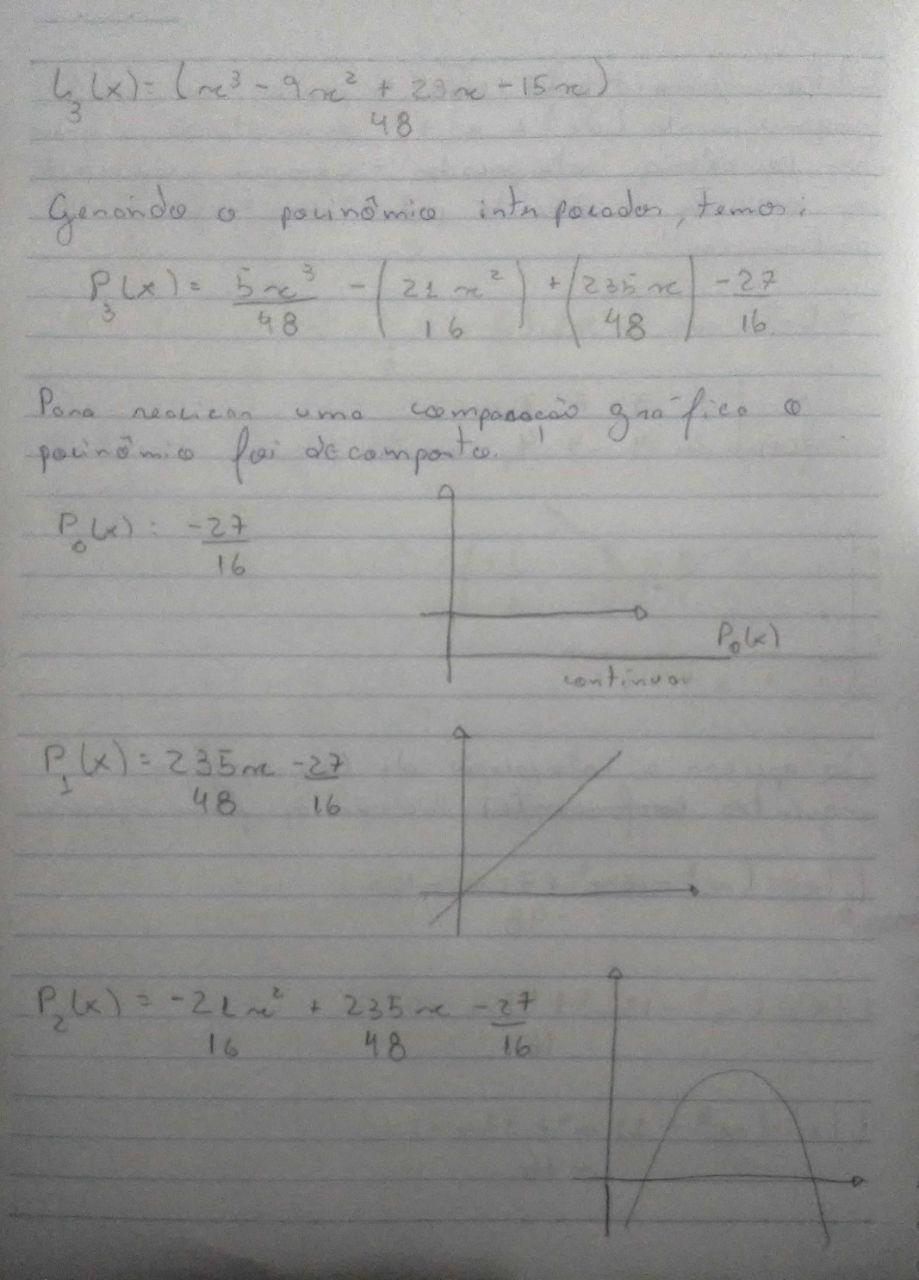 L₃(x) = (x³ - 9x² + 23x - 15x)
48
Gerando o polinômio interpolador, temos:
P₃(x) = 5x³/48 - (21x²/16) + (235x/48) - 27/16
Para realizar uma comparação gráfica o
polinômio foi decomposto.
P₀(x): -27/16
P₀(x)
continuar
P₁(x) = 235x/48 - 27/16
P₂(x) = -21x²/16 + 235x/48 - 27/16